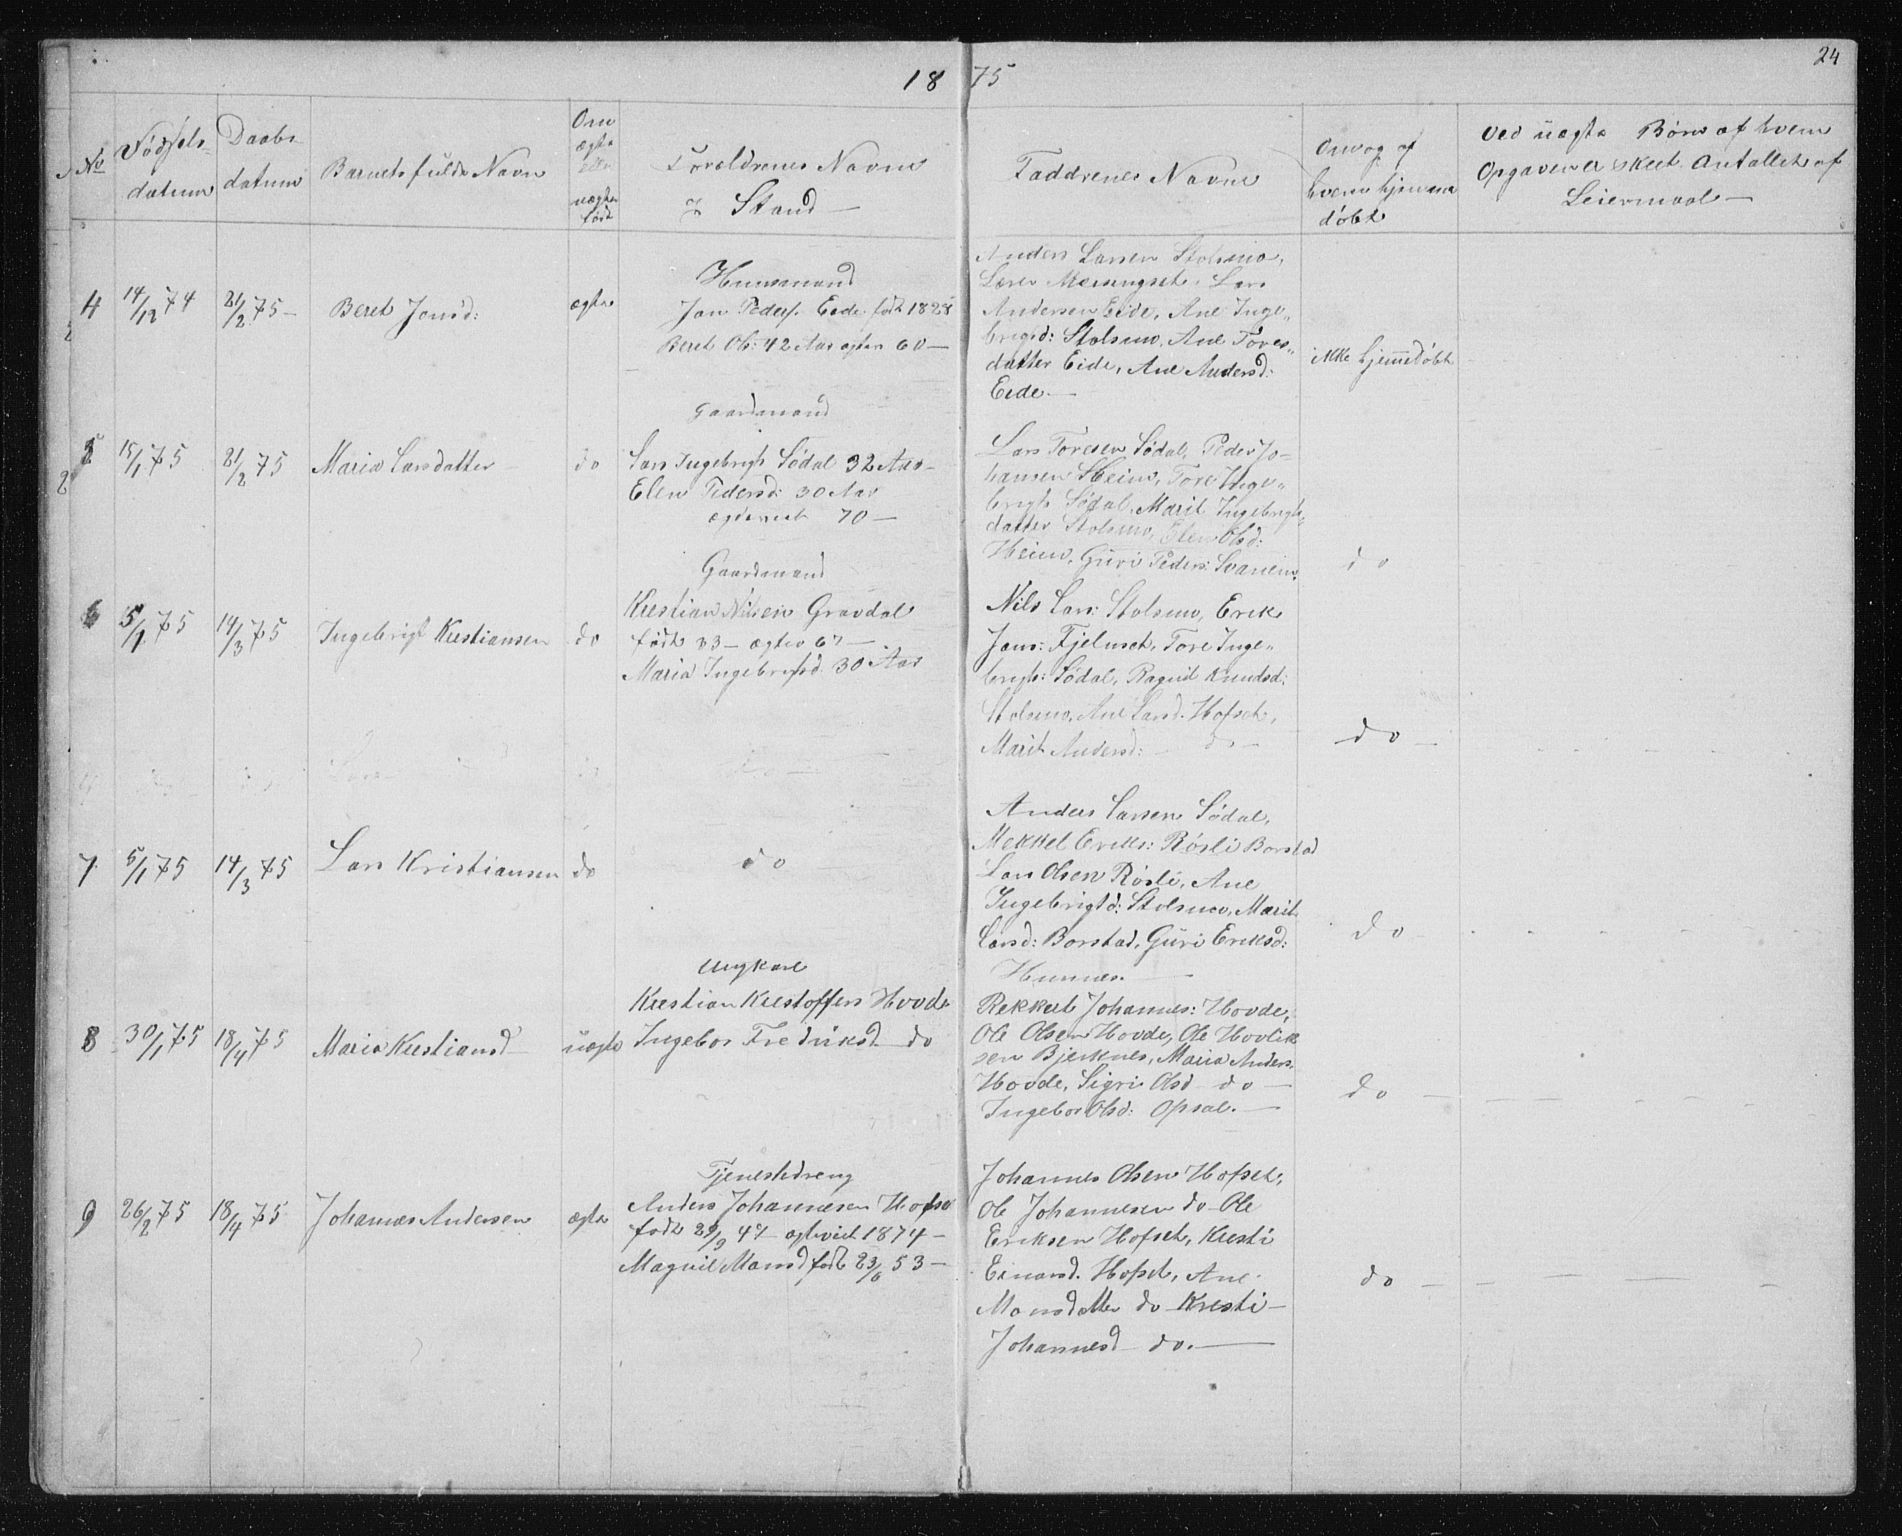 1875
24
No
Fødsels-
datum
Daabs
datum
Barnets fulde Navn
Om
ægte
eller
uægte
født
Forældrenes Navne
& Stand —
Faddrenes Navne
Om og af
hvem hjemme
døbt
Ved uægte Børn af hvem
Opgaven er skeet. Antallet af
Leiermaal —
4 14/12 74 21/2 75 — Beret Jonsd: ægte
Huusmand
Jon Peders. Eide født 1828
Beret Ols: 42 Aar ægtev 60 —
Anders Larsen Stolsmo,
Lars
Andersen Eide, Ane Inge„
brigtd: Stolsmo, Ane Tores„
datter Eide, Ane Andersd:
Eide —
ikke hjemmedøbt
5 15/1 75 21/2 75 Maria Larsdatter do
Gaardmand
Lars Ingebrigts Sødal 32 Aar —
Elen Pedersd: 30 Aar
70 —
Lars Toresen Sødal, Peder Jo-
hansen Heim, Tore Inge„
brigts Sødal, Marit Ingebrigts„
datter Stolsmo, Elen Olsd:
Heim, Guri Peders: Svanem.
do
6 5/1 75 14/3 75 Ingebrigt Kristiansen do
Gaardmand
Kristian Nilsen Gravdal
født 33 — ægtev 67 —
Maria Ingebrigtsd. 30 Aar
Nils Lars: Stolsmo, Erik
Jons: Fjelnset, Tore Inge„
brigts: Sødal, Ragnil Knudsd:
Stolsmo, Ane Larsd. Hofset,
Marit Andersd: — do —
do —
7 5/1 75 14/3 75 Lars Kristiansen do
do
Anders Larsen Sødal,
Mekkel Eriks: Røsli Borstad
Lars Olsen Røsli, Ane
Ingebrigtd: Stolsmo, Marit
Larsd: Borstad, Guri Eriksd:
Humnes. —
do
8 30/1 75 18/4 75 Maria Kristiansd uægte
Ungkarl
Kristian Kristoffers Hovde
Ingebor Fredriksd do
Rekkert Johannes: Hovde,
Ole Olsen Hovde, Ole Hovlik
sen Bjerknes, Maria Anders.
Hovde, Sigri Olsd do —
Ingebor Olsd: Opsal. —
do —
9 26/2 75 18/4 75 Johannes Andersen ægte
Tjenestedreng
Anders Johannesen Hofset
født 29/9 47 — ægteviet 1874 —
Magnil Monsd født 23/6 53 —
Johannes Olsen Hofset,
Ole Johannesen do — Ole
Eriksen Hofset, Kristi
Einarsd. Hofset, Ane
Monsdatter do — Kristi —
Johannesd — do. —
do —